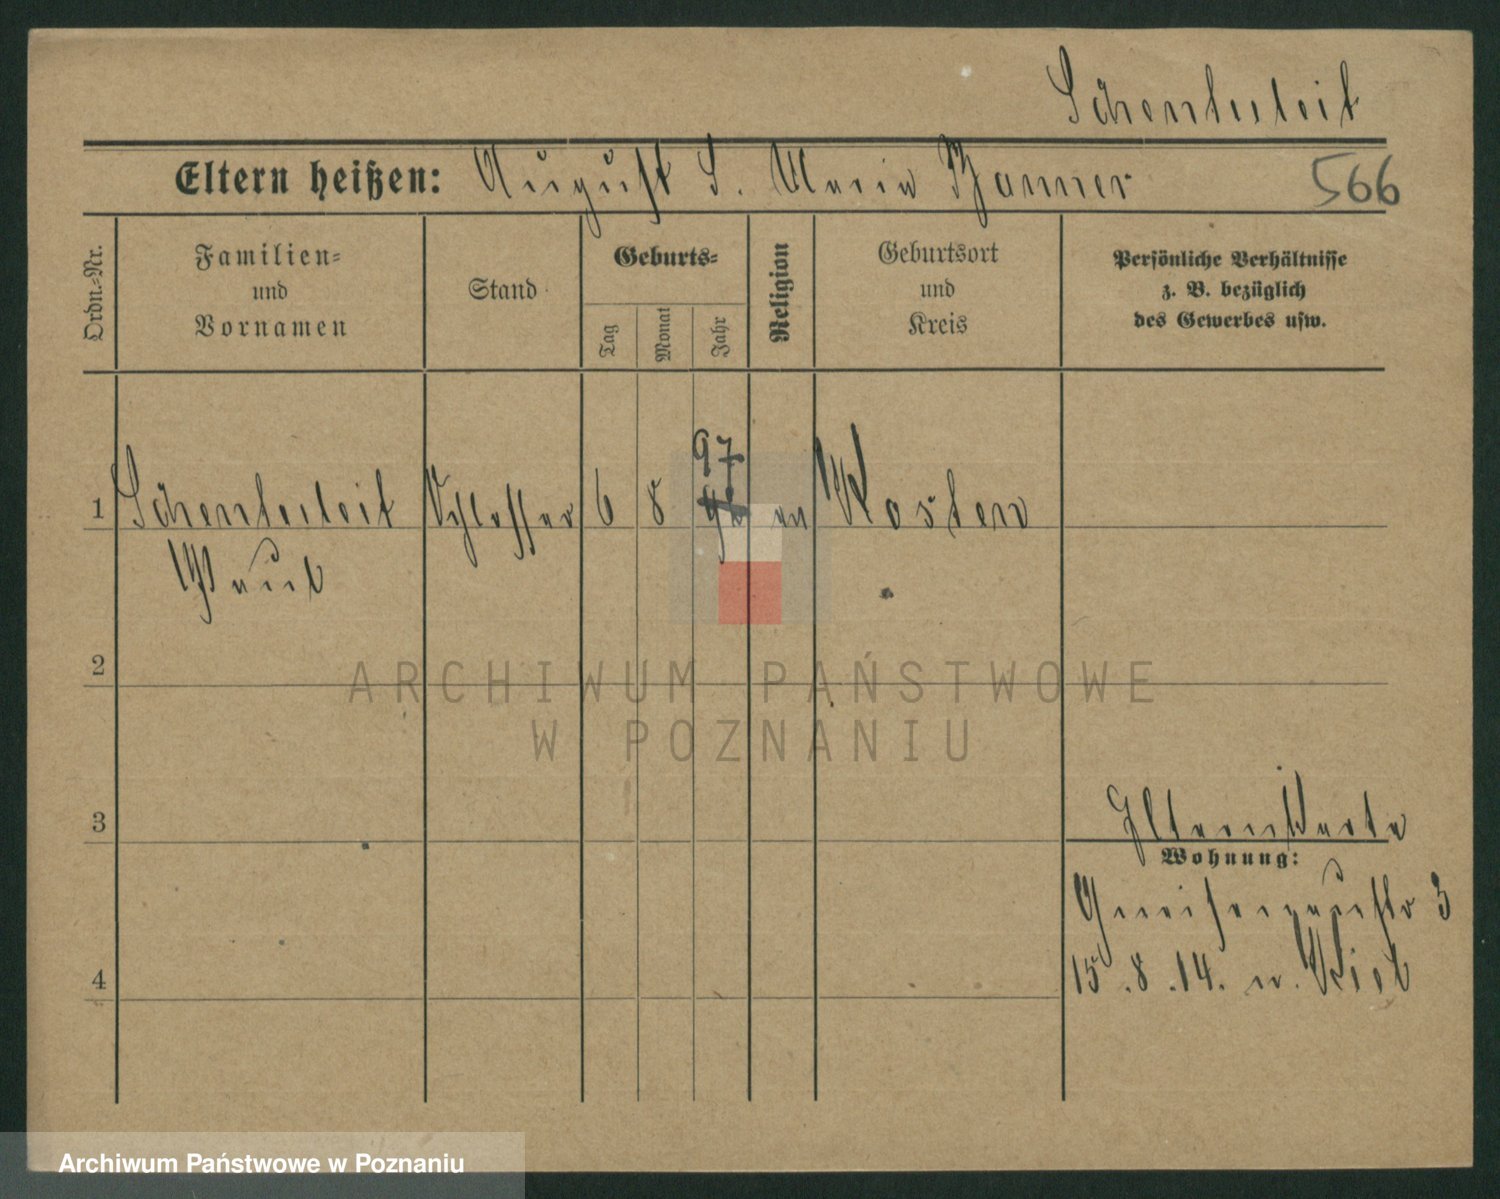 Schenluleit
Eltern heißen: August S. Maria Banner 566
Ordn.-Nr.
Familien-
und
Vornamen
Stand
Geburts-
Tag
Monat
Jahr
Religion
Geburtsort
und
Kreis
Persönliche Verhältnisse
z. B. bezüglich
des Gewerbes usw.
97
1 Schenluleit Schlosser 6 8 ev Kosten
Paul
2
ARCHIWUM PAŃSTWOWE
W POZNANIU
3
Elternkarte
Wohnung:
Gneisenaustr 3
4
15.8.14. n. Kiel
Archiwum Państwowe w Poznaniu